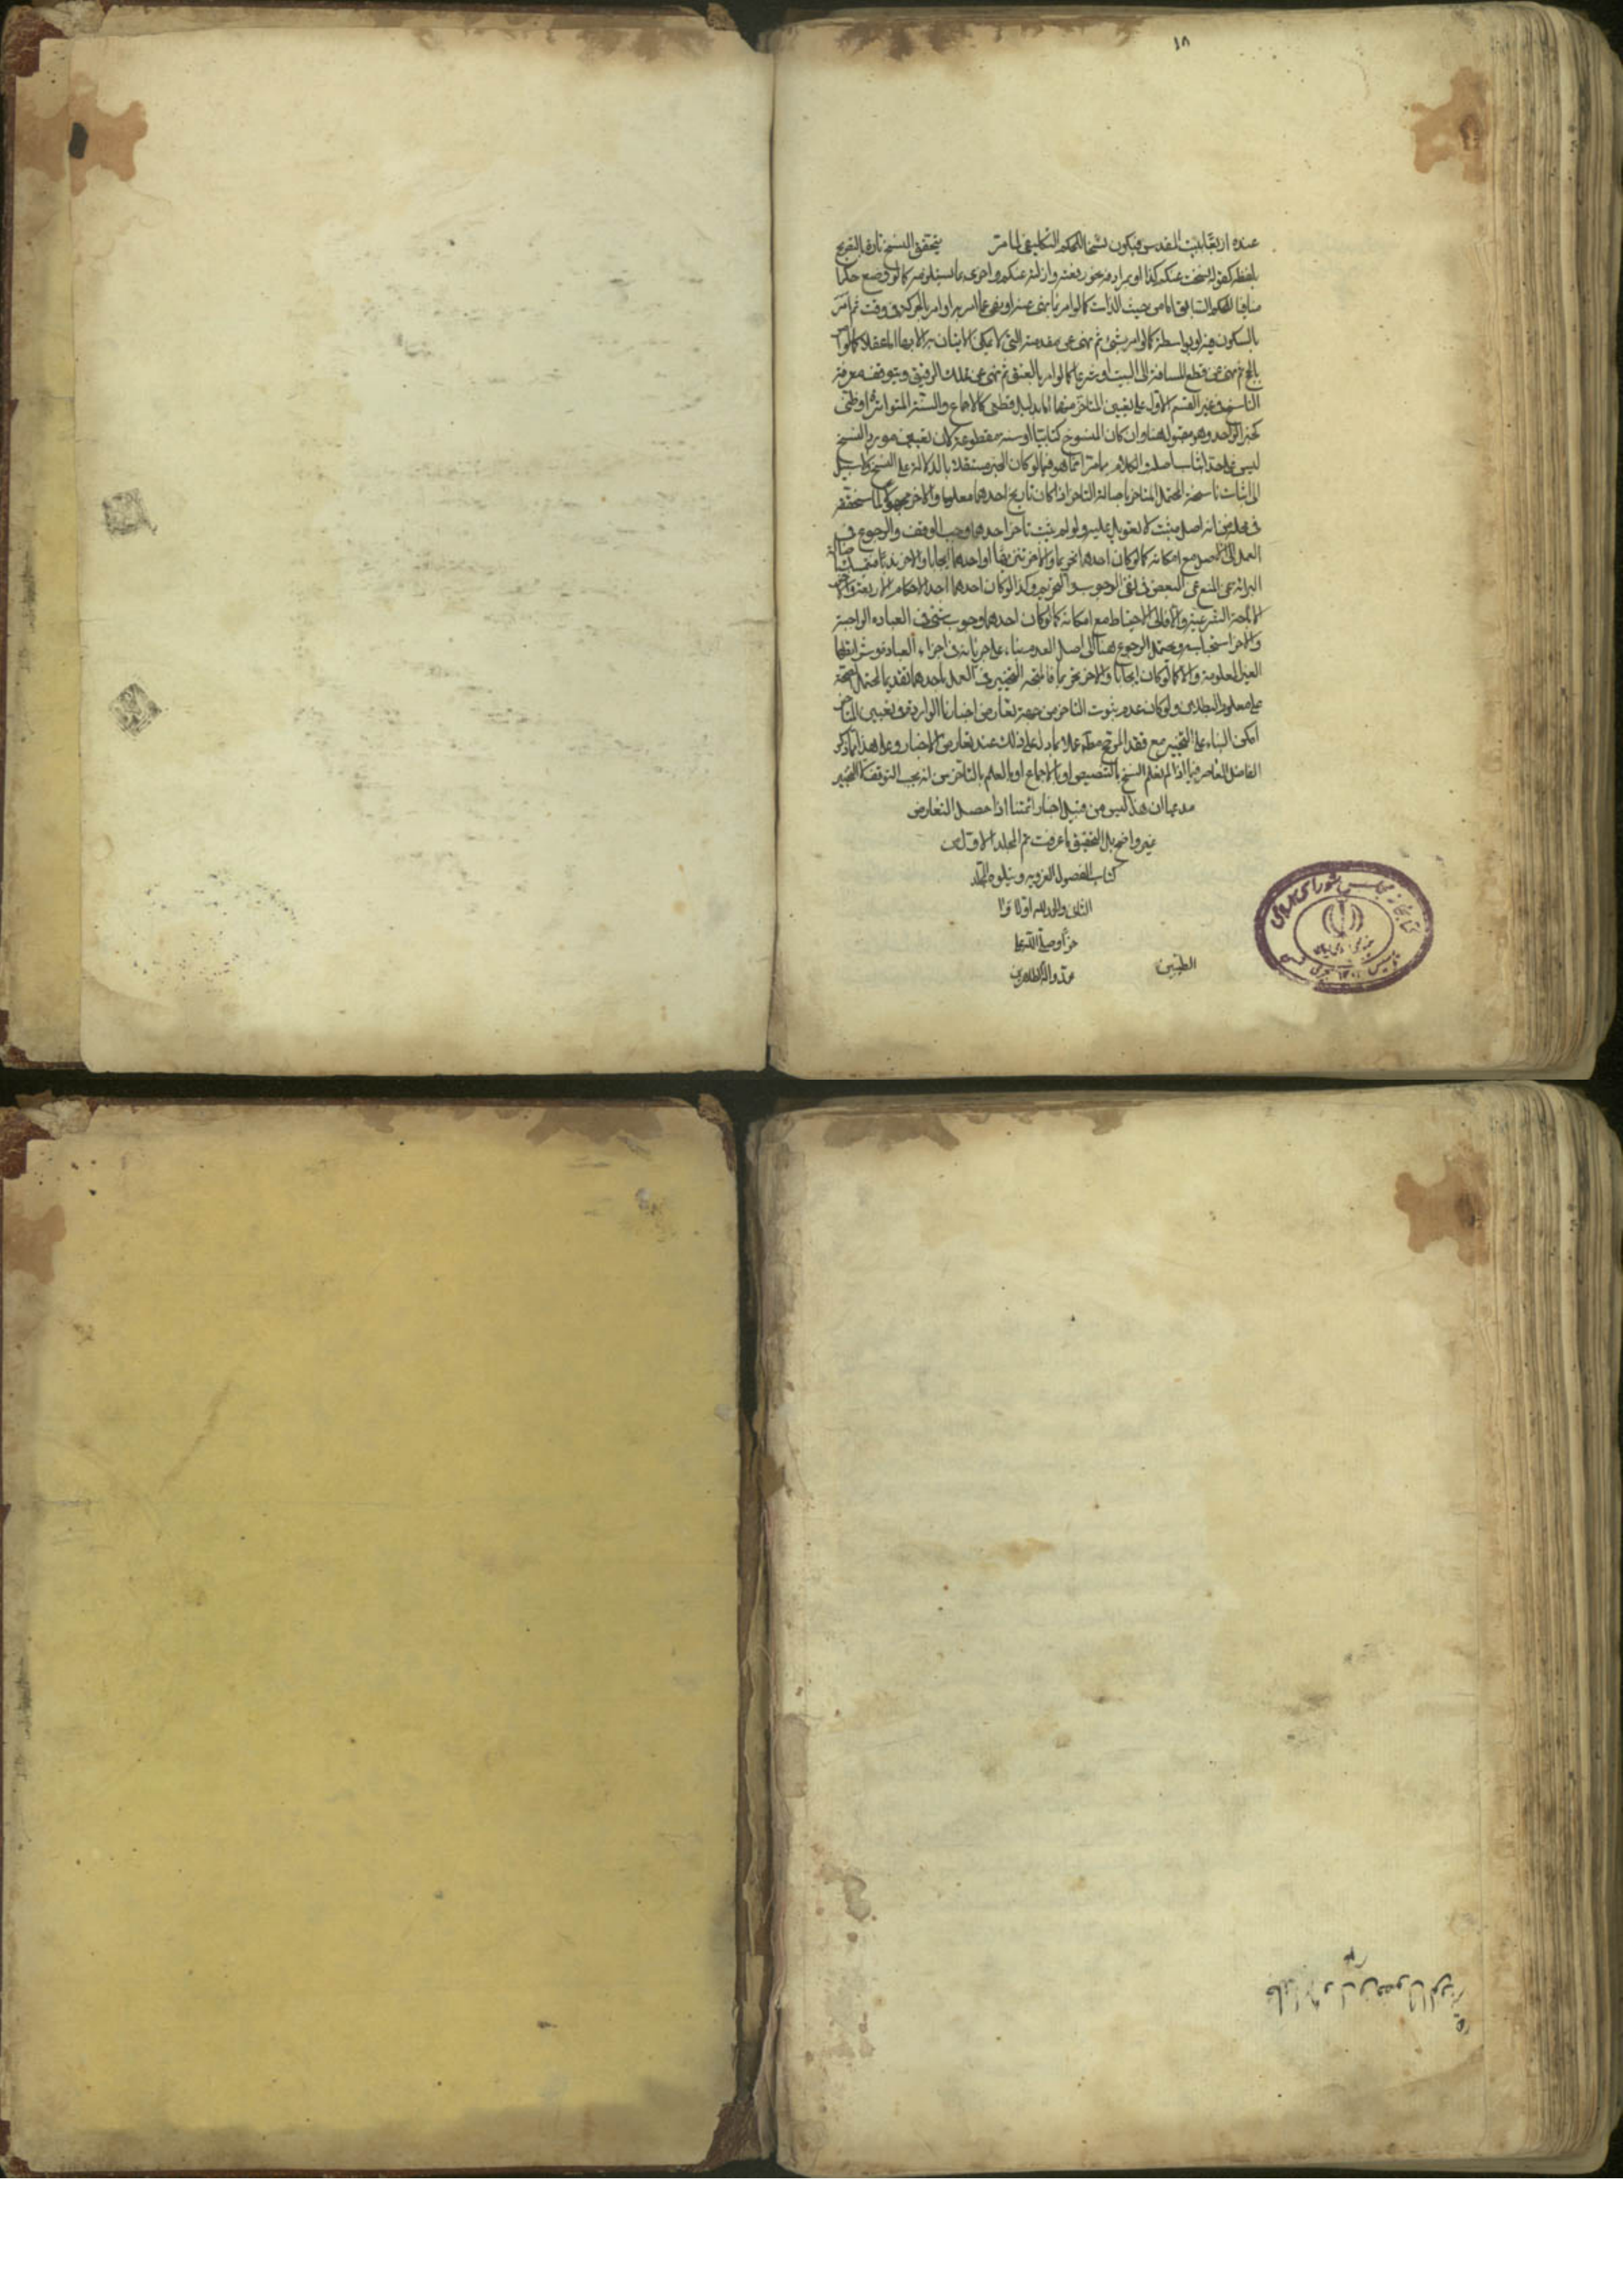 ١٨
عنده اربقا بيت المقدس فيكون نسخا للحكم التكليفى لما مر يتحقق النسخ تارة بالتصريح
بلفظه كقوله نسخت عنكم كذا او بمرادفه نحو رفعته وازلته عنكم واخرى بما يستلزمه كما لو وضع حكما
منافيا للحكم السابق اما من حيث الذات كما لو امر بما نهى عنه او نهى عما امر به او امر بالحركة فى وقت ثم امر
بالسكون فيه او بواسطة كما لو امر بشئ ثم نهى عن مقدمته التى لا يمكن الاتيان به الا بها اما عقلا كما لو امر
بالحج ثم نهى عن قطع المسافة الى البيت او شرعا كما لو امر بالعتق ثم نهى عن تملك الرقيق ويتوقف معرفة
الناسخ فى غير القسم الاول على تعيين المتاخر منهما اما بدليل قطعى كالاجماع والسنة المتواترة او ظنى
كخبر الواحد وهو مقبول هنا وان كان المنسوخ كتابا او سنة مقطوعة لان تعيين مورد النسخ
ليس على حد اثبات اصله والكلام مامر انما هو فيما لو كان الخبر مستقلا بالدلالة على النسخ ولا سبيل
الى اثبات ناسخية المحتمل المتاخر باصالة التاخر اذا كان تاريخ احدهما معلوما والاخر مجهولا لما سنحققه
فى محله من انه اصل مثبت لا تعويل عليه ولو لم يثبت تاخر احدهما وجب الوقف والرجوع فى
العمل الى الاصل مع امكانه كما لو كان احدهما تحريما والاخر تنزيها او احدهما ايجابا والاخر ندبا
البرائة عن المنع عن النقيض فى نفى الوجوب والتحريم وكذا لو كان احدهما احد الاحكام الاربعة والاخر
الاباحة الشرعية والا فالى الاحتياط مع امكانه كما لو كان احدهما وجوب شئ فى العبادة الواجبة
والاخر استحبابه ويحتمل الرجوع هنا الى اصل العدم بناء على جريانه فى اجزاء العبادة وشرايطها
الغير المعلومة والا كما لو كان ايجابا والاخر تحريما فالمتجه التخيير فى العمل باحدهما تقديما لمحتمل الصحة
على معلوم البطلان ولو كان عدم ثبوت التاخر من جهة تعارض اخبارنا الواردة فى تعيين المتاخر
امكن البناء على التخيير مع فقد المرجح مطلقا عملا بما دل على ذلك عند تعارض الاخبار وعلى هذا فما ذكره
الفاضل المعاصر فيما اذا لم يعلم النسخ بالتنصيص او بالاجماع او بالعلم بالتاخر من انه يجب التوقف لا التخيير
مدعيا ان هذا ليس من قبيل اخبار ائمتنا اذا حصل التعارض
غير واضح بل التحقيق ما عرفت تم المجلد الاول من
كتاب الفصول الغرويه ويتلوه المجلد
الثانى والحمد لله اولا وا
خرا وصلى الله على
محمد واله الطاهرين
الطيبين
كتابخانه مجلس شوراى ملى